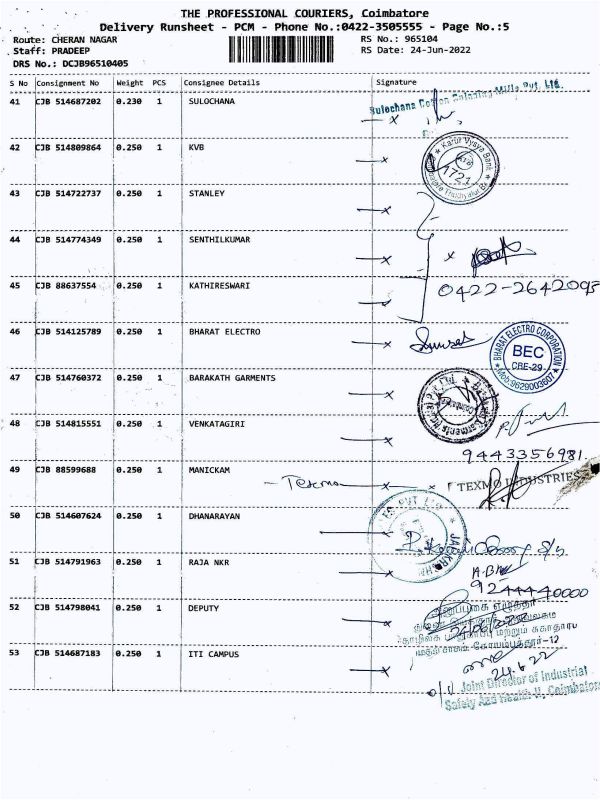 THE PROFESSIONAL COURIERS, Coimbatore
Delivery Runsheet - PCM - Phone No.:0422-3505555 - Page No.:5
Route: CHERAN NAGAR RS No.: 965104
Staff: PRADEEP RS Date: 24-Jun-2022
DRS No.: DCJB96510405
S No Consignment No Weight PCS Consignee Details Signature
41 CJB 514687202 0.230 1 SULOCHANA
Sulochana Cotton Spinning Mills Pvt. Ltd.
42 CJB 514809864 0.250 1 KVB
Karur Vysya Bank
1721
43 CJB 514722737 0.250 1 STANLEY
44 CJB 514774349 0.250 1 SENTHILKUMAR
45 CJB 88637554 0.250 1 KATHIRESWARI
0422-2642093
46 CJB 514125789 0.250 1 BHARAT ELECTRO
BHARAT ELECTRO CORPORATION
BEC
CBE-29
Mob:9629003607
47 CJB 514760372 0.250 1 BARAKATH GARMENTS
48 CJB 514815551 0.250 1 VENKATAGIRI
9443356981
49 CJB 88599688 0.250 1 MANICKAM
Texmo
TEXMO INDUSTRIES
50 CJB 514607624 0.250 1 DHANARAYAN
51 CJB 514791963 0.250 1 RAJA NKR
9244440000
52 CJB 514798041 0.250 1 DEPUTY
53 CJB 514687183 0.250 1 ITI CAMPUS
24.6.22
Joint Director of Industrial
Safety And Health II, Coimbatore